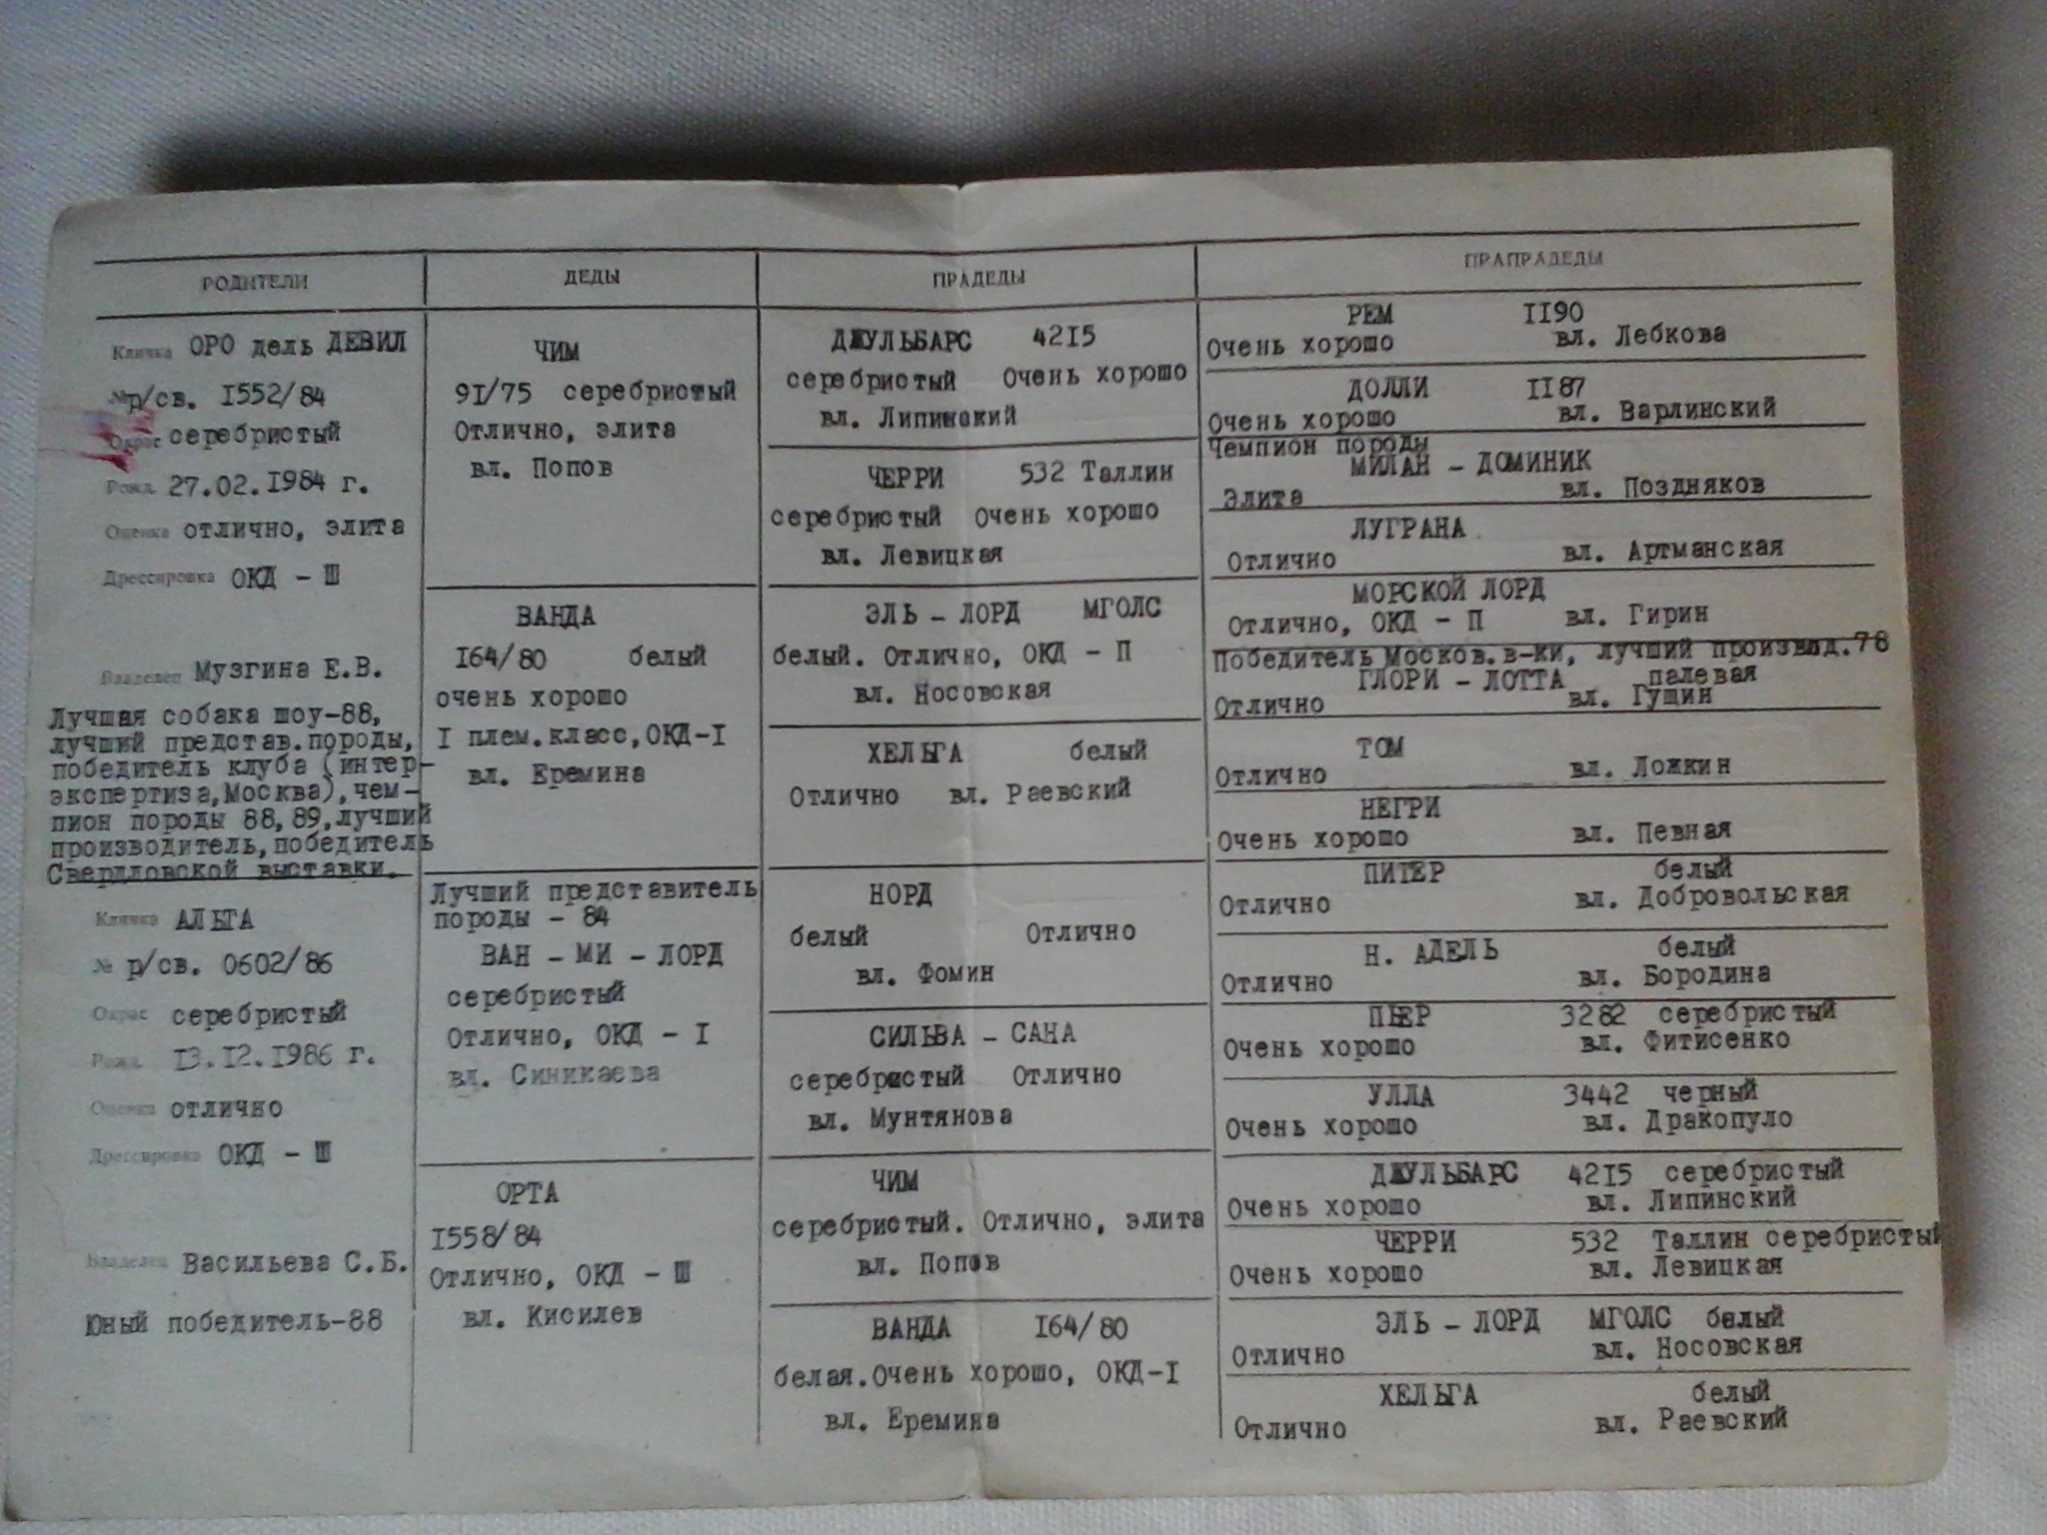 РОДИТЕЛИ
Кличка ОРО дель ДЕВИЛ
№ р/св. I552/84
Окрас серебристый
Рожд. 27.02.I984 г.
Оценка отлично, элита
Дрессировка ОКД - Ш
Владелец Музгина Е.В.
Лучшая собака шоу-88,
лучший представ.породы,
победитель клуба (интер-
экспертиза,Москва),чем-
пион породы 88,89,лучший
производитель,победитель
Свердловской выставки.
Кличка АЛЬГА
№ р/св. 0602/86
Окрас серебристый
Рожд. I3.I2.I986 г.
Оценка отлично
Дрессировка ОКД - Ш
Владелец Васильева С.Б.
Юный победитель-88
ДЕДЫ
ЧИМ
9I/75 серебристый
Отлично, элита
вл. Попов
ВАНДА
I64/80 белый
очень хорошо
I плем.класс,ОКД-I
вл. Еремина
Лучший представитель
породы - 84
ВАН - МИ - ЛОРД
серебристый
Отлично, ОКД - I
вл. Синикаева
ОРТА
I558/84
Отлично, ОКД - Ш
вл. Кисилев
ПРАДЕДЫ
ДЖУЛЬБАРС 42I5
серебристый Очень хорошо
вл. Липинский
ЧЕРРИ 532 Таллин
серебристый Очень хорошо
вл. Левицкая
ЭЛЬ - ЛОРД МГОЛС
белый. Отлично, ОКД - П
вл. Носовская
ХЕЛЬГА белый
Отлично вл. Раевский
НОРД
белый Отлично
вл. Фомин
СИЛЬВА - САНА
серебристый Отлично
вл. Мунтянова
ЧИМ
серебристый. Отлично, элита
вл. Попов
ВАНДА I64/80
белая.Очень хорошо, ОКД-I
вл. Еремина
ПРАПРАДЕДЫ
РЕМ II90
Очень хорошо вл. Лебкова
ДОЛЛИ II87
Очень хорошо вл. Варлинский
Чемпион породы
МИЛАН - ДОМИНИК
Элита вл. Поздняков
ЛУГРАНА
Отлично вл. Артманская
МОРСКОЙ ЛОРД
Отлично, ОКД - П вл. Гирин
Победитель Москов.в-ки, лучший производ.78
ГЛОРИ - ЛОТТА палевая
Отлично вл. Гущин
ТОМ
Отлично вл. Ложкин
НЕГРИ
Очень хорошо вл. Певная
ПИТЕР белый
Отлично вл. Добровольская
Н. АДЕЛЬ белый
Отлично вл. Бородина
ПЬЕР 3282 серебристый
Очень хорошо вл. Фитисенко
УЛЛА 3442 черный
Очень хорошо вл. Дракопуло
ДЖУЛЬБАРС 42I5 серебристый
Очень хорошо вл. Липинский
ЧЕРРИ 532 Таллин серебристый
Очень хорошо вл. Левицкая
ЭЛЬ - ЛОРД МГОЛС белый
Отлично вл. Носовская
ХЕЛЬГА белый
Отлично вл. Раевский